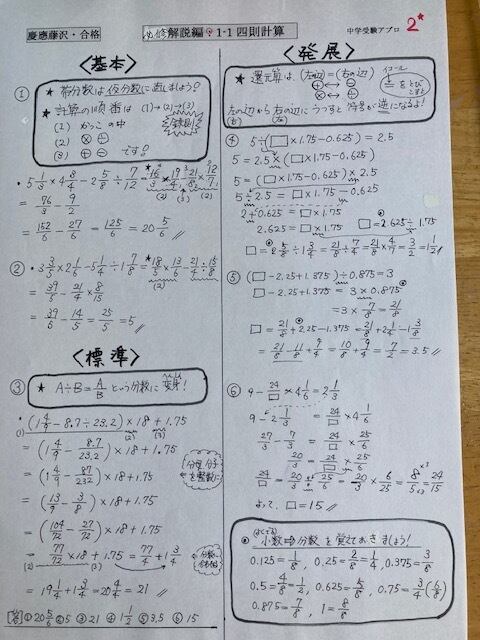 慶應藤沢・合格
必修解説編 1-1 四則計算
中学受験アプロ
2*
〈基本〉
①
★ 帯分数は仮分数に直しましょう!
★ 計算の順番は (1)→(2)→(3)
(1) かっこの中
(2) ⊗ ⊕
(3) ⊕ ⊖ です!
・5 1/3 × 4 3/4 - 2 5/8 ÷ 7/12 = 16/3 × 19/4 - 21/8 × 12/7
(2) (3) (2)
= 76/3 - 9/2
= 152/6 - 27/6 = 125/6 = 20 5/6 //
②・3 3/5 × 2 1/6 - 5 1/4 ÷ 1 7/8 = 18/5 × 13/6 - 21/4 ÷ 15/8
(2)
= 39/5 - 21/4 × 8/15
= 39/5 - 14/5 = 25/5 = 5 //
〈標準〉
③
★ A÷B = A/B という分数に変身!
(1 4/9 - 8.7÷23.2) × 18 + 1.75
(1) (2) (3)
= (1 4/9 - 8.7/23.2) × 18 + 1.75
= (1 4/9 - 87/232) × 18 + 1.75
分母、分子を整数に
= (13/9 - 3/8) × 18 + 1.75
= (104/72 - 27/72) × 18 + 1.75
= 77/72 × 18 + 1.75 = 77/4 + 1 3/4
(2) (3)
= 19 1/4 + 1 3/4 = 20 4/4 = 21 //
[答] ① 20 5/6 ② 5 ③ 21 ④ 1 1/2 ⑤ 3.5 ⑥ 15
〈発展〉
★ 還元算は、(左辺)=(右辺)
イコール
= をとびこすと
⊕ ↔ ⊖
⊗ ↔ ÷
左の辺から右の辺にうつすと符号が逆になるよ!
(右) (左)
④ 5÷(□×1.75-0.625) = 2.5
5 = 2.5 × (□×1.75-0.625)
5 = (□×1.75-0.625) × 2.5
5÷2.5 = □×1.75-0.625
2+0.625 = □×1.75
2.625 = □×1.75 □ = 2.625÷1.75
□ = 2 5/8 ÷ 1 3/4 = 21/8 ÷ 7/4 = 21/8 × 4/7 = 3/2 = 1 1/2 //
⑤ (□-2.25+1.375)÷0.875 = 3
□-2.25+1.375 = 3×0.875
= 3×7/8 = 21/8
□ = 21/8 + 2.25-1.375 = 21/8 + 2 1/4 - 1 3/8
= 21/8 - 11/8 + 9/4 = 10/8 + 9/4 = 7/2 = 3.5 //
⑥ 9 - 24/□ × 4 1/6 = 2 1/3
9 - 2 1/3 = 24/□ × 4 1/6
27/3 - 7/3 = 24/□ × 25/6
20/3 = 24/□ × 25/6
24/□ = 20/3 ÷ 25/6 = 20/3 × 6/25 = 8/5 ×3 ×3 = 24/15
よって、□ = 15 //
よくでる
◎ 小数⇔分数 を覚えておきましょう!
0.125 = 1/8 , 0.25 = 2/8 = 1/4 , 0.375 = 3/8
0.5 = 4/8 = 1/2 , 0.625 = 5/8 , 0.75 = 3/4 (6/8)
0.875 = 7/8 , 1 = 8/8